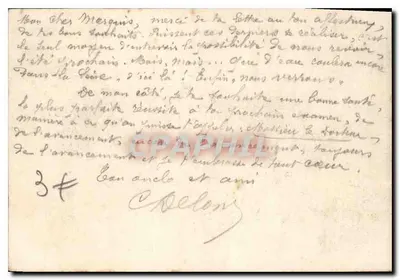 Mon cher Marquis, merci de ta lettre au ton affectueux,
de tes bons souhaits. Puissent ces derniers se réaliser, c'est
le seul moyen d'entrevoir la possibilité de nous revoir,
l'été prochain. Mais, mais... d'eau coulera encore
dans la d'ici là ! Enfin, nous verrons.
De mon côté, je te souhaite une bonne santé,
la plus parfaite réussite à ton prochain examen, de
manière à ce qu'on puisse t'appeler, Monsieur le docteur,
de l'avancement, toujours
de l'avancement et je t'embrasse de tout cœur.
Ton oncle et ami
3 €